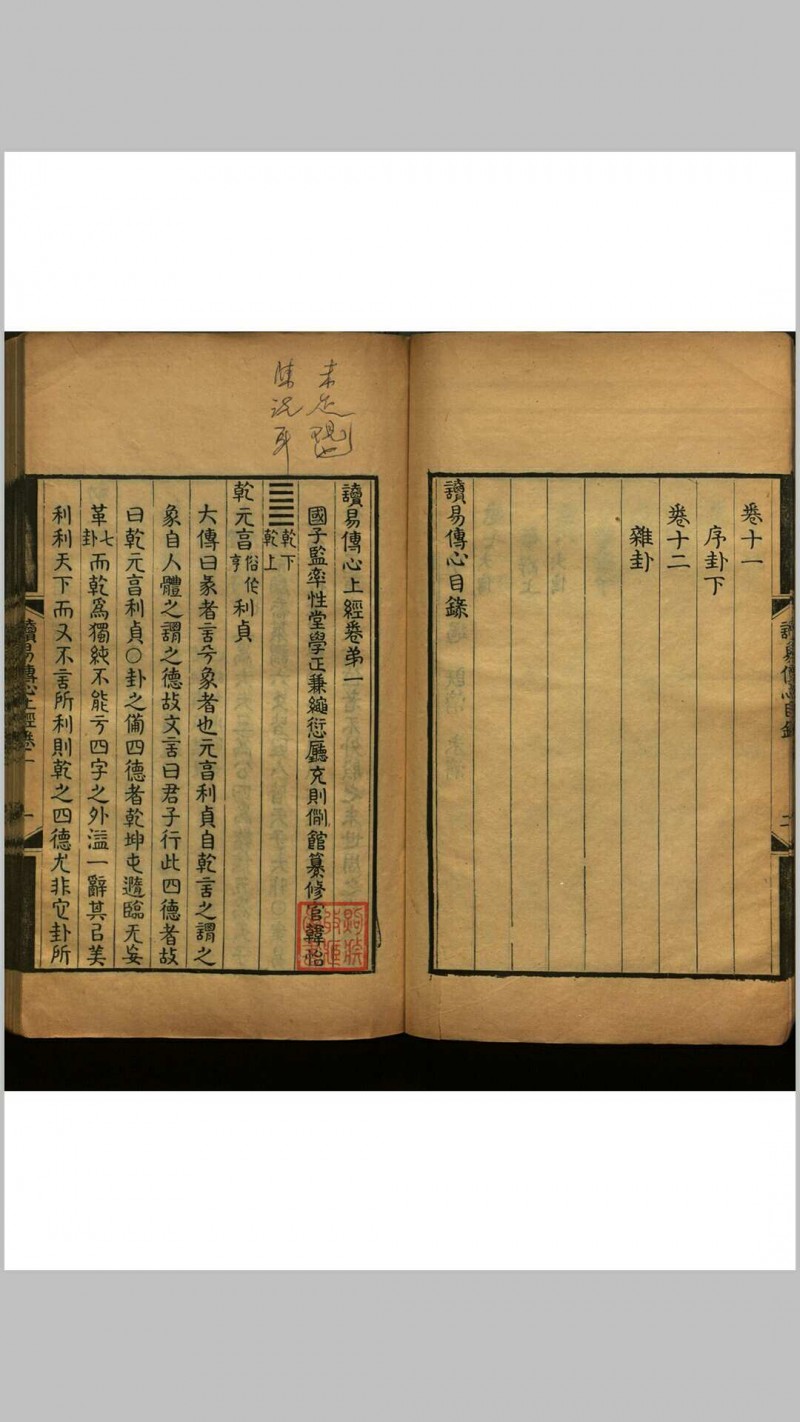 卷十一
序卦下
卷十二
雜卦
讀易傳心目錄
讀易傳心上經卷弟一
國子監率性堂學正兼繩愆廳充則例館纂修官韓怡
乾下
乾上
乾元亯俗作亨利貞
大傳曰彖者言乎象者也元亯利貞自乾言之謂之
象自人體之謂之德故文言曰君子行此四德者故
曰乾元亯利貞〇卦之備四德者乾坤屯隨臨无妄
革七卦而乾爲獨純不能亏四字之外溢一辭其㠯美
利利天下而又不言所利則乾之四德尤非它卦所
讀易傳心上經卷一
一
讀易傳心目錄
二